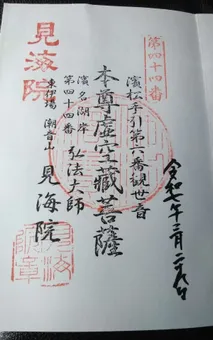 第四十四番
令和七年三月
濱松手引第六番観世音
本尊虚空藏菩薩
濱名湖岸
第四十四番 弘法大師
東伊場 潮音山 見海院
見海院
見海院章